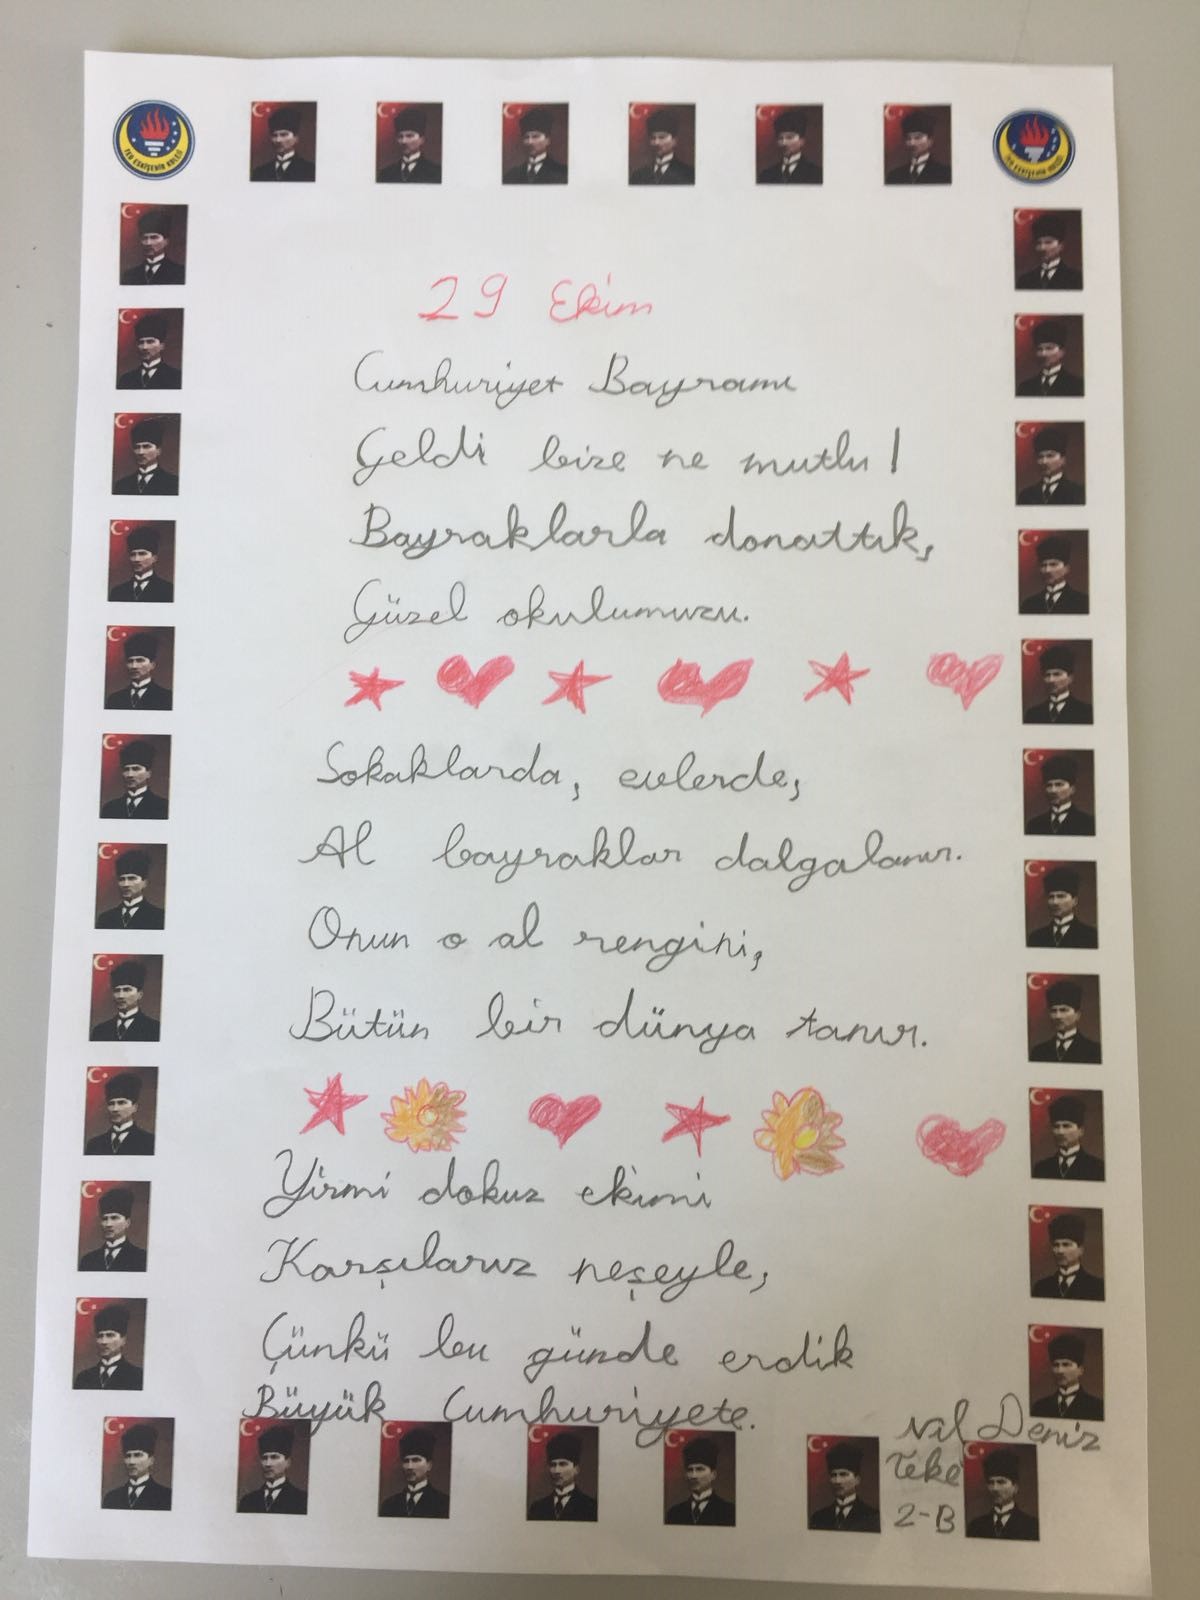 TED ESKİŞEHİR KOLEJİ
TED ESKİŞEHİR KOLEJİ
29 Ekim
Cumhuriyet Bayramı
Geldi bize ne mutlu!
Bayraklarla donattık,
Güzel okulumuzu.
Sokaklarda, evlerde,
Al bayraklar dalgalanır.
Onun o al rengini,
Bütün bir dünya tanır.
Yirmi dokuz ekimi
Karşılarız neşeyle,
Çünkü bu günde erdik
Büyük Cumhuriyete.
Nil Deniz
Teke
2-B